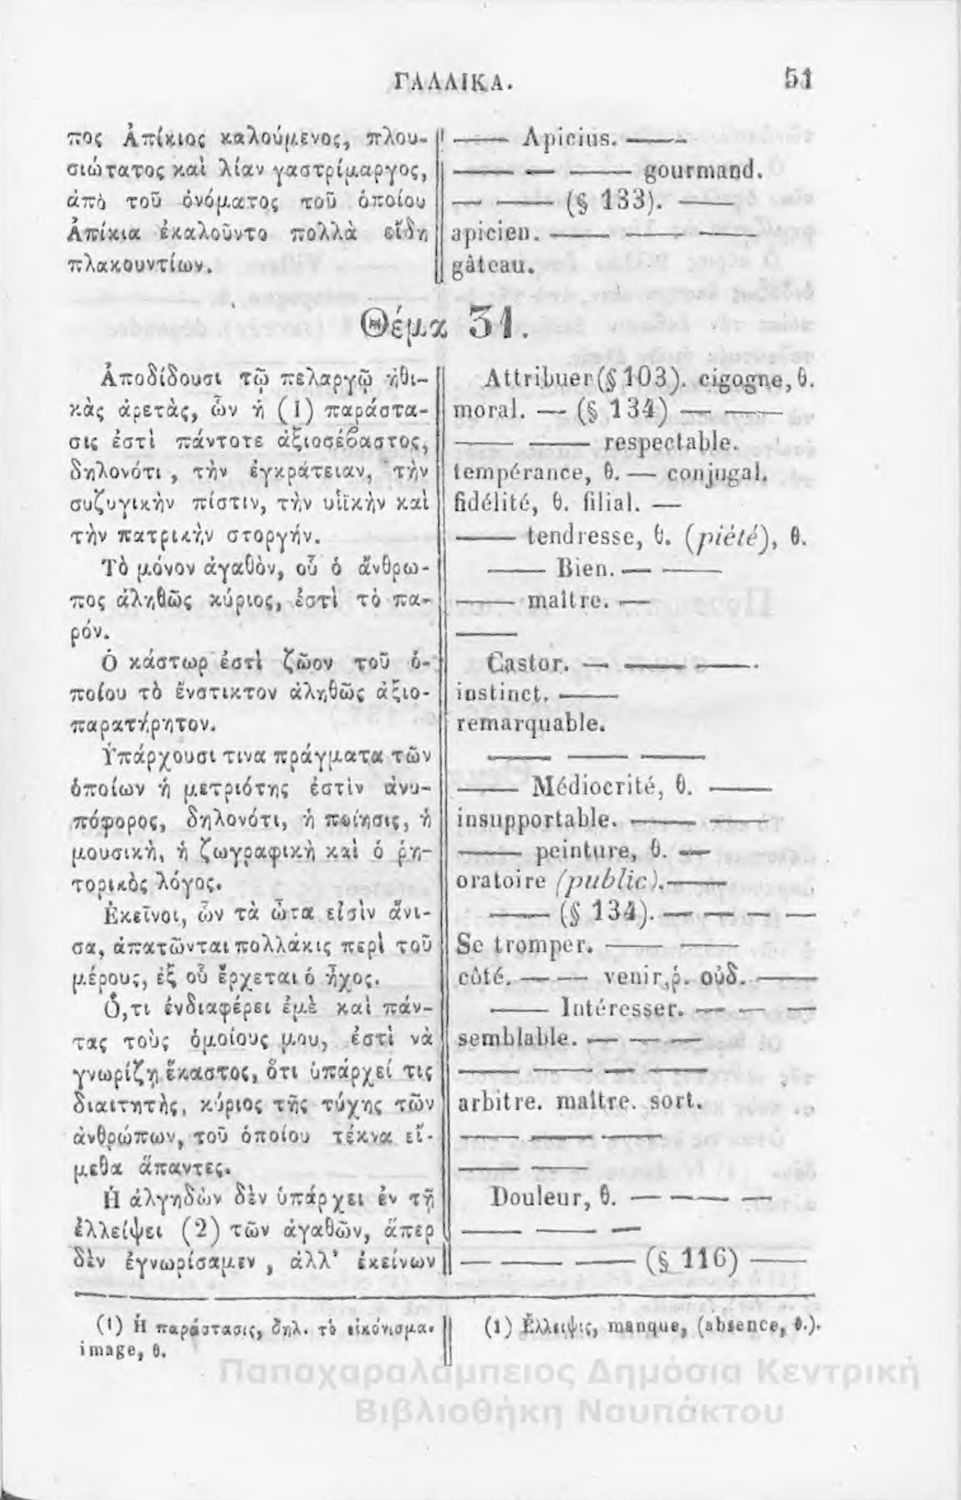 ΓΑΛΛΙΚΑ. 51
πος Ἀπίκιος καλούμενος, πλου-
σιώτατος καὶ λίαν γαστρίμαργος,
ἀπὸ τοῦ ὀνόματος τοῦ ὁποίου
Ἀπίκια ἐκαλοῦντο πολλὰ εἴδη
πλακουντίων.
—— Apicius. ——
—— — —— gourmand.
— —— (§ 133). ——
apicien. —— — ——
gâteau.
Θέμα 31.
Ἀποδίδουσι τῷ πελαργῷ ἠθι-
κὰς ἀρετὰς, ὧν ἡ (1) παράστα-
σις ἐστὶ πάντοτε ἀξιοσέβαστος,
δηλονότι, τὴν ἐγκράτειαν, τὴν
συζυγικὴν πίστιν, τὴν υἱϊκὴν καὶ
τὴν πατρικὴν στοργήν.
Τὸ μόνον ἀγαθὸν, οὗ ὁ ἄνθρω-
πος ἀληθῶς κύριος, ἐστὶ τὸ πα-
ρόν.
Ὁ κάστωρ ἐστὶ ζῶον τοῦ ὁ-
ποίου τὸ ἔνστικτον ἀληθῶς ἀξιο-
παρατήρητον.
Ὑπάρχουσι τινα πράγματα τῶν
ὁποίων ἡ μετριότης ἐστὶν ἀνυ-
πόφορος, δηλονότι, ἡ ποίησις, ἡ
μουσικὴ, ἡ ζωγραφικὴ καὶ ὁ ῥη-
τορικὸς λόγος.
Ἐκεῖνοι, ὧν τὰ ὦτα εἰσὶν ἄνι-
σα, ἀπατῶνται πολλάκις περὶ τοῦ
μέρους, ἐξ οὗ ἔρχεται ὁ ἦχος.
Ὅ,τι ἐνδιαφέρει ἐμὲ καὶ πάν-
τας τοὺς ὁμοίους μου, ἐστὶ νὰ
γνωρίζῃ ἕκαστος, ὅτι ὑπάρχεί τις
διαιτητὴς, κύριος τῆς τύχης τῶν
ἀνθρώπων, τοῦ ὁποίου τέκνα εἴ-
μεθα ἅπαντες.
Ἡ ἀλγηδὼν δὲν ὑπάρχει ἐν τῇ
ἐλλείψει (2) τῶν ἀγαθῶν, ἅπερ
δὲν ἐγνωρίσαμεν, ἀλλ' ἐκείνων
Attribuer (§ 103). cigogne, θ.
moral. — (§ 134) — ——
—— —— respectable.
tempérance, θ. — conjugal.
fidélité, θ. filial. —
—— tendresse, θ. (piété), θ.
—— Bien. — ——
—— maître. —
——
Castor. — —— ——.
instinct. ——
remarquable.
—— ——
—— Médiocrité, θ. ——
insupportable. —— ——
—— peinture, θ. —
oratoire (public). ——
—— (§ 134). — — — —
Se tromper. —— ——
côté. — — venir, ῥ. οὐδ. ——
—— Intéresser. — — —
semblable. — — —
—— —— — ——
arbitre. maître. sort.
—— —— ——
—— ——
Douleur, θ. — —— —
—— —— —
— —— —— (§ 116) ——
(1) Ἡ παράστασις, δηλ. τὸ εἰκόνισμα.
image, θ.
(1) Ἔλλειψις, manque, (absence, θ.).
Παπαχαραλάμπειος Δημόσια Κεντρική
Βιβλιοθήκη Ναυπάκτου